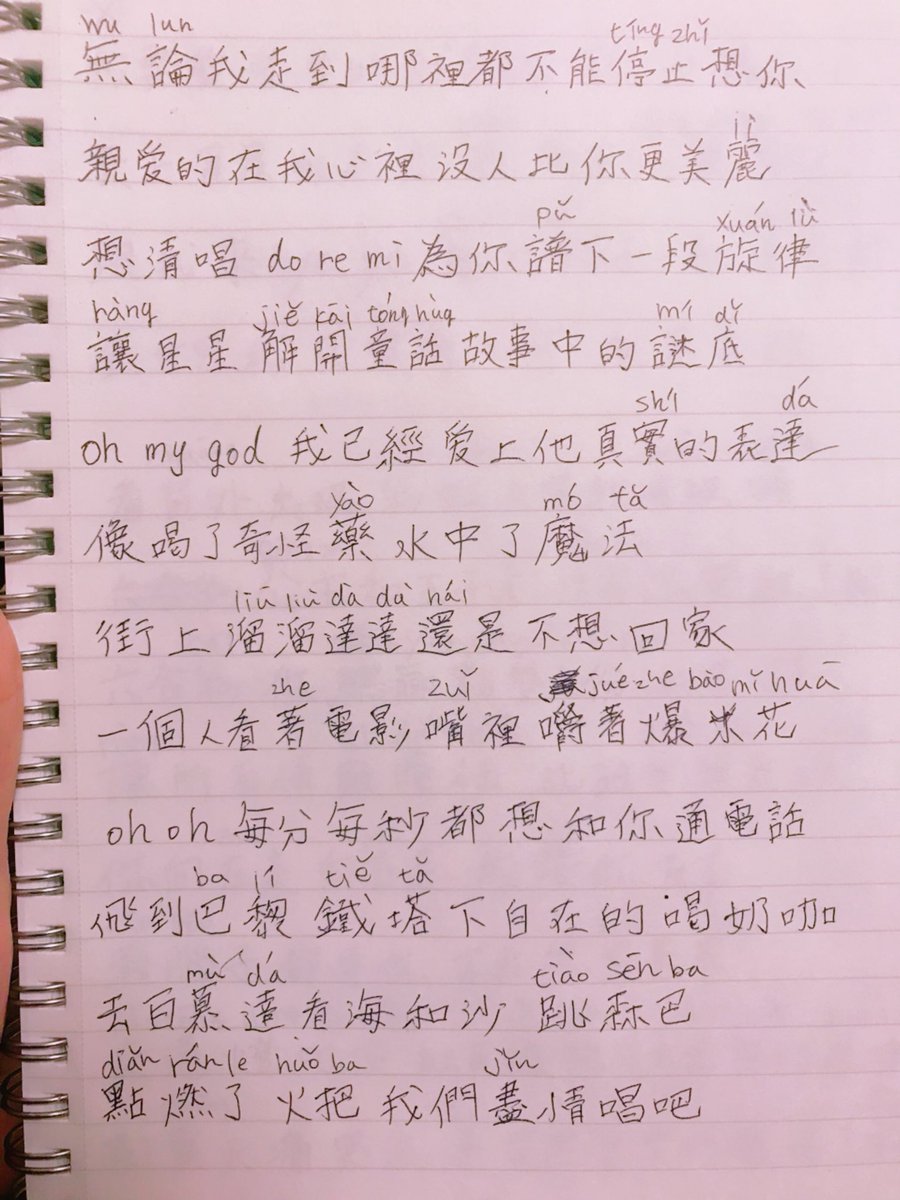 wu lun tíng zhǐ
無論我走到哪裡都不能停止想你
lì
親爱的在我心裡沒人比你更美麗
pǔ xuán lǜ
想清唱 do re mi 為你譜下一段旋律
ràng jiě kāi tóng hùa mí dǐ
讓星星解開童話故事中的謎底
shí dá
oh my god 我已經爱上他真實的表達
yào mó fǎ
像喝了奇怪藥水中了魔法
liū liū dà dà hái
街上溜溜達達還是不想回家
zhe zuǐ jué zhe bào mǐ huā
一個人看著電影嘴裡嚼着爆米花
oh oh 每分每秒都想和你通電話
ba lí tiě tǎ
飛到巴黎鐵塔下自在的喝奶咖
mù dá tiào sēn ba
去百慕達看海和沙 跳森巴
diǎn rán le huǒ ba jǐn
點燃了火把 我們盡情唱吧